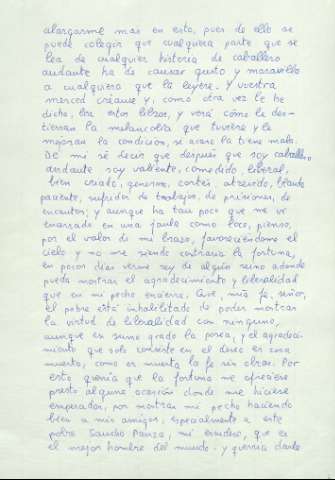 alargarme mas en esto, pues de ello se
puede colegir que cualquiera parte que se
lea de cualquier historia de caballero
andante ha de causar gusto y maravilla
a cualquiera que la leyere. Y vuestra
merced créame y, como otra vez le he
dicho, lea estos libros, y verá cómo le des-
tierran la melancolía que tuviere y le
mejoran la condición, si acaso la tiene mala.
De mi sé decir que después que soy caballero
andante soy valiente, comedido, liberal,
bien criado, generoso, cortés, atrevido, blando
paciente, sufridor de trabajos, de prisiones, de
encantos; y aunque ha tan poco que me vi
encerrado en una jaula como loco, pienso,
por el valor de mi brazo, favoreciéndome el
cielo y no me siendo contraria la fortuna,
en pocos días verme rey de algún reino adonde
pueda mostrar el agradecimiento y liberalidad
que en mi pecho encierra. Que, mía fe, señor,
el pobre está inhabilitado de poder mostrar
la virtud de liberalidad con ninguno,
aunque en sumo grado la posea, y el agradeci-
miento que solo consiste en el deseo es cosa
muerta, como es muerta la fe sin obras. Por
esto querría que la fortuna me ofreciese
presto alguna ocasión donde me hiciese
emperador, por mostrar mi pecho haciendo
bien a mis amigos, especialmente a este
pobre Sancho Panza, mi escudero, que es
el mejor hombre del mundo. y querría darle